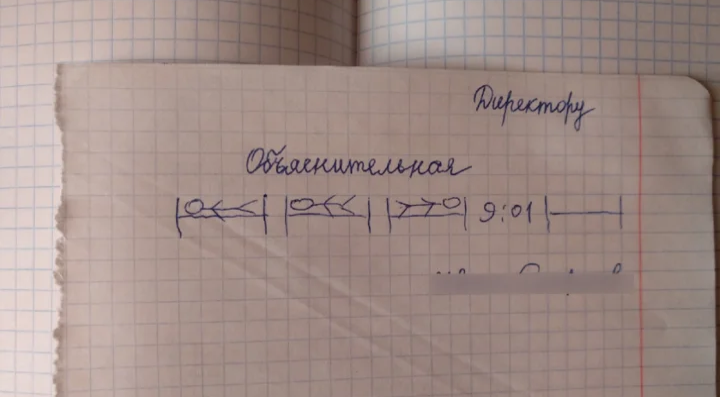 Директору
Объяснительная
9:01